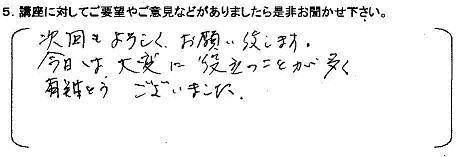 5. 講座に対してご要望やご意見などがありましたら是非お聞かせ下さい。
次回もよろしくお願い致します。
今日は大変に役立つことが多く
有難とうございました。